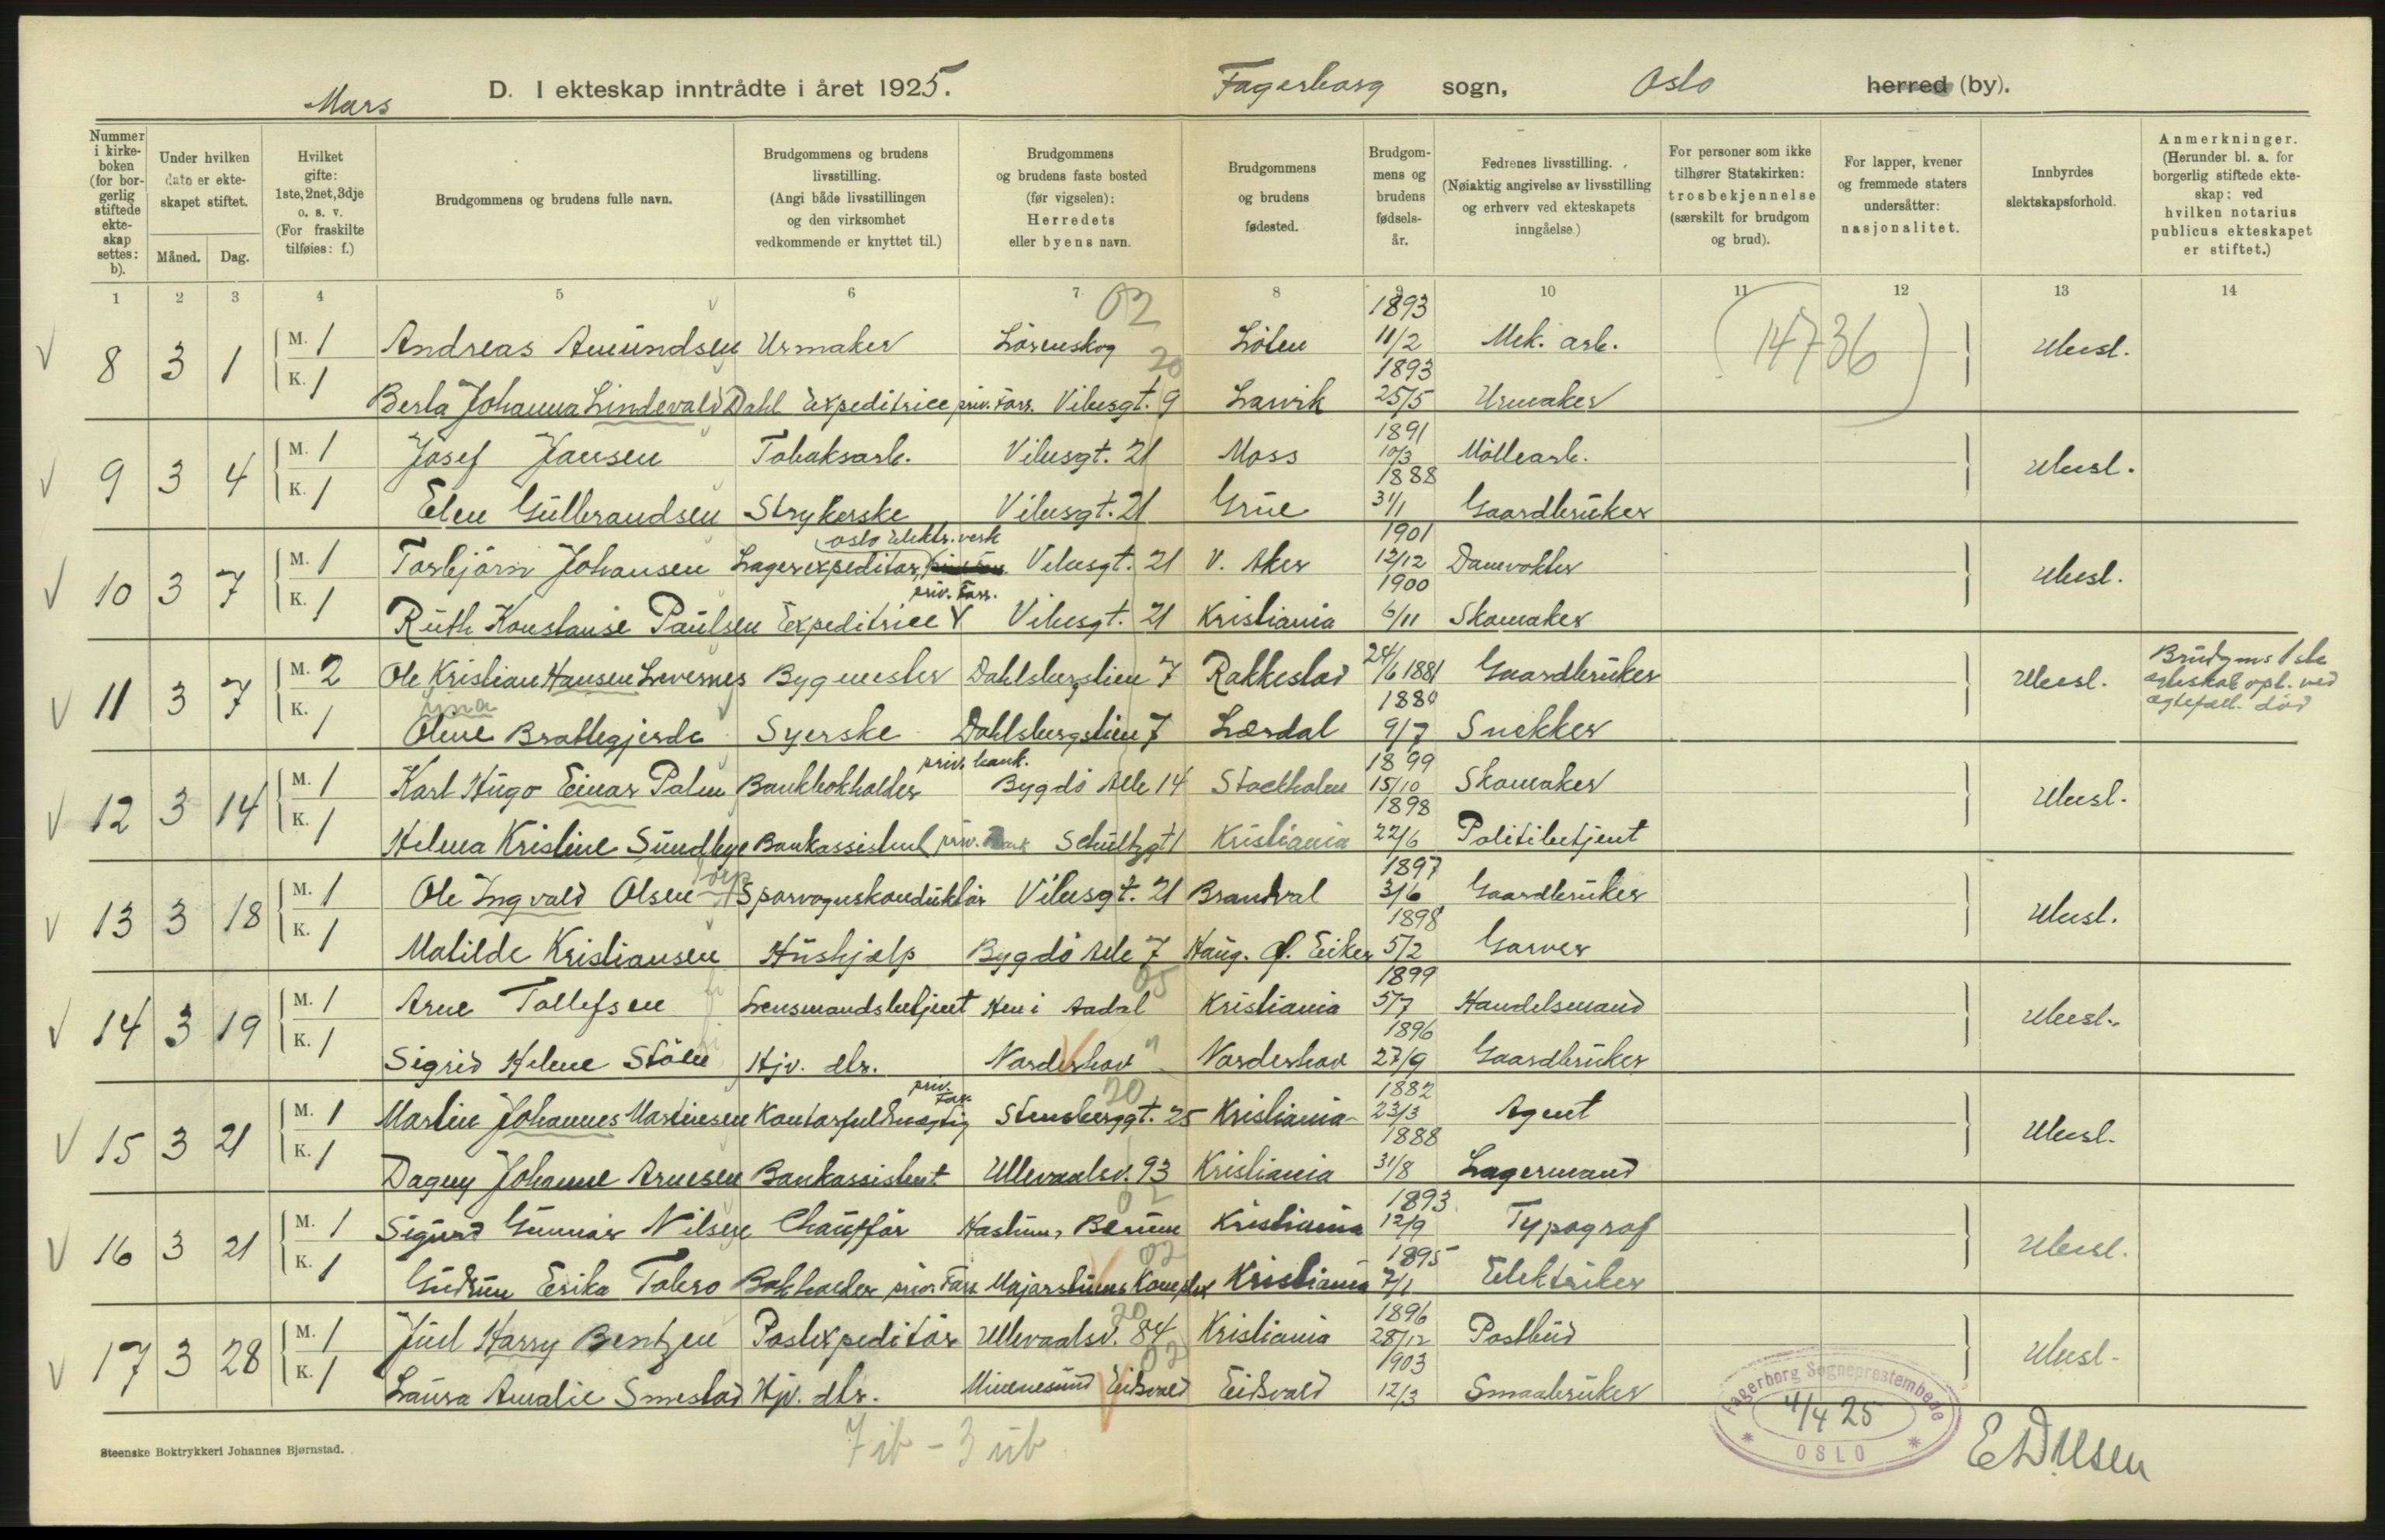 Mars
D. I ekteskap inntrådte i året 1925.
Fagerborg sogn, Oslo herred (by).
Nummer i kirke-boken (for bor-gerlig stiftede ekte-skap settes: b).
Under hvilken dato er ekte-skapet stiftet.
Måned. Dag.
Hvilket gifte: 1ste, 2net, 3dje o. s. v. (For fraskilte tilføies: f.)
Brudgommens og brudens fulle navn.
Brudgommens og brudens livsstilling. (Angi både livsstillingen og den virksomhet vedkommende er knyttet til.)
Brudgommens og brudens faste bosted (før vigselen): Herredets eller byens navn.
Brudgommens og brudens fødested.
Brudgom-mens og brudens fødsels-år.
Fedrenes livsstilling. (Nøiaktig angivelse av livsstilling og erhverv ved ekteskapets inngåelse.)
For personer som ikke tilhører Statskirken: trosbekjennelse (særskilt for brudgom og brud).
For lapper, kvener og fremmede staters undersåtter: nasjonalitet.
Innbyrdes slektskapsforhold.
Anmerkninger. (Herunder bl. a. for borgerlig stiftede ekte-skap: ved hvilken notarius publicus ekteskapet er stiftet.)
1 2 3 4 5 6 7 8 9 10 11 12 13 14
02
(14736)
V 8 3 1 M. 1 Andreas Amundsen Urmaker Lörenskog Löten 1893 11/2 Mek. arb. Ubesl.
20
K. 1 Berta Johanna Lindevald Dahl Expeditrice priv. Forr. Vibesgt. 9 Larvik 1893 25/5 Urmaker
V 9 3 4 M. 1 Josef Jansen Tobaksarb. Vibesgt. 21 Moss 1891 10/3 Möllearb. Ubesl.
K. 1 Elen Gulbrandsen Strykerske Vibesgt. 21 Grue 1888 31/1 Gaardbruker
Oslo Elektr. verk
V 10 3 7 M. 1 Torbjörn Johansen Lagerexpeditör, Vibesgt. 21 V. Aker 1901 12/12 Damvokter Ubesl.
priv. Forr.
K. 1 Ruth Konstanse Paulsen Expeditrice V Vibesgt. 21 Kristiania 1900 6/11 Skomaker
V 11 3 7 M. 2 Ole Kristian Hansen Levernes Bygmester Dahlsbergstien 7 Rakkestad 24/6 1881 Gaardbruker Ubesl. Brudgms 1ste ægteskab opl. ved ægtefæll. död
K. 1 Oline Brattegjerde Syerske Dahlsbergstien 7 Lærdal 1880 9/7 Snekker
priv. bank.
V 12 3 14 M. 1 Karl Hugo Einar Palm Bankbokholder Bygdö Alle 14 Stockholm 1899 15/10 Skomaker Ubesl.
K. 1 Helma Kristine Sundbye Bankassistent priv. Bank Schultzgt 1 Kristiania 1898 22/6 Politibetjent
V 13 3 18 M. 1 Ole Ingvald Olsen Torp Sporvognskonduktör Vibesgt. 21 Brandval 1897 3/6 Gaardbruker Ubesl.
K. 1 Matilde Kristiansen Hushjælp Bygdö Alle 7 Haug. Ø. Eiker 1898 5/2 Garver
05
V 14 3 19 M. 1 Arne Tollefsen Lensmandsbetjent Hen i Aadal Kristiania 1899 5/7 Handelsmand Ubesl.
K. 1 Sigrid Helene Stölen Hjv. dtr. Norderhov Norderhov 1896 27/9 Gaardbruker
priv. Forr.
20
V 15 3 21 M. 1 Martin Johannes Martinsen Kontorfuldmægtig Stensberggt. 25 Kristiania 1882 23/3 Agent Ubesl.
K. 1 Dagny Johanne Arnesen Bankassistent Ullevaalsv. 93 Kristiania 1888 31/8 Lagermand
02
V 16 3 21 M. 1 Sigurd Gunnar Nilsen Chaufför Haslum, Bærum Kristiania 1893 12/9 Typograf Ubesl.
02
K. 1 Gudrun Erika Tobro Bokholder priv. Forr. Majorstuens Komplex Kristiania 1895 7/1 Elektriker
20
V 17 3 28 M. 1 Juel Harry Bentzen Postexpeditör Ullevaalsv. 84 Kristiania 1896 28/12 Postbud Ubesl.
02
K. 1 Laura Amalie Smestad Hjv. dtr. Minnesund Eidsvold Eidsvold 1903 12/3 Smaabruker
7 ib - 3 ub
Steenske Boktrykkeri Johannes Bjørnstad.
Fagerborg Sogneprestembede
4/4 25
* OSLO *